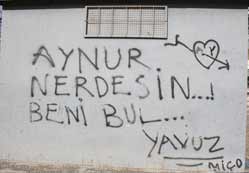 AYNUR
NERDESİN...!
BENİ BUL...
A Y
YAVUZ
MİÇO